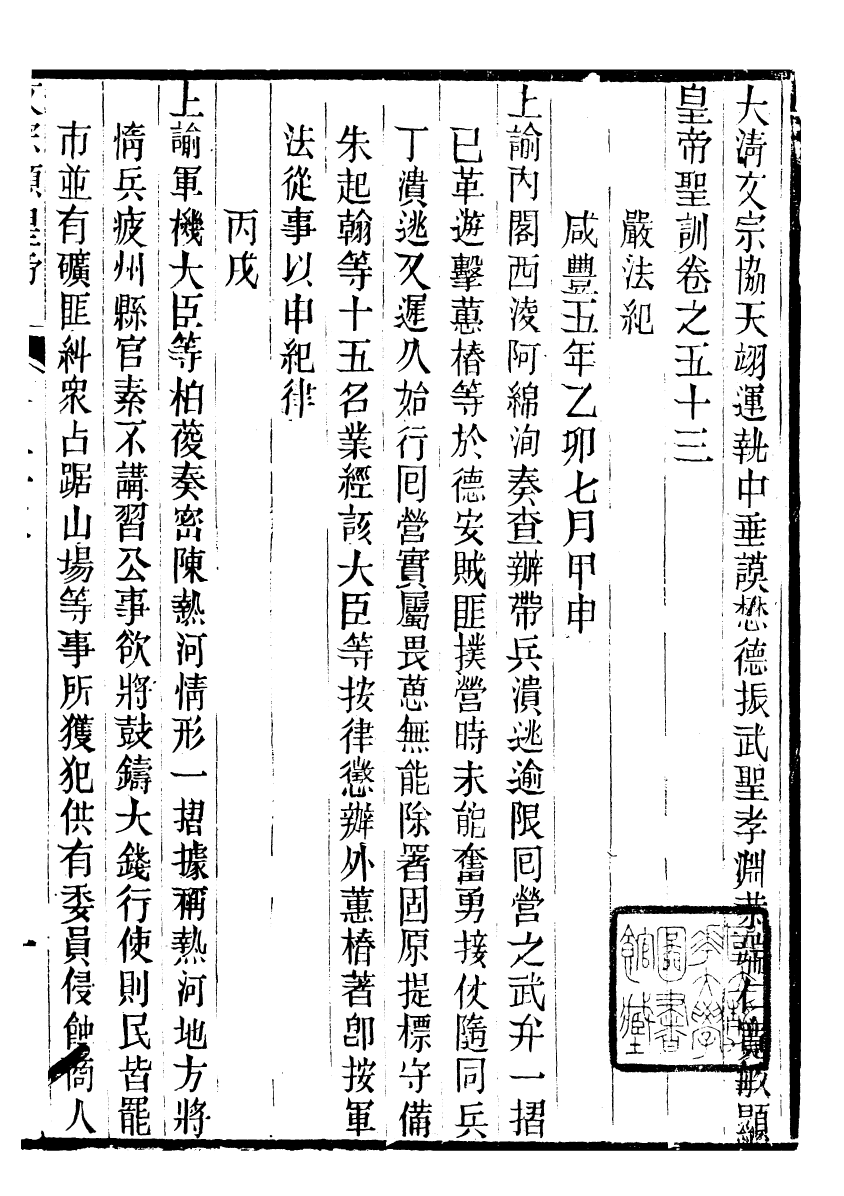 大清文宗協天翊運執中垂謨懋德振武聖孝淵恭端仁寬敏顯
皇帝聖訓卷之五十三
嚴法紀
咸豐五年乙卯七月甲申
上諭內閣西淩阿綿洵奏查辦帶兵潰逃逾限囘營之武弁一摺
已革遊擊蕙椿等於德安賊匪撲營時未能奮勇接仗隨同兵
丁潰逃又遲久始行囘營實屬畏葸無能除署固原提標守備
朱起翰等十五名業經該大臣等按律懲辦外蕙椿著卽按軍
法從事以申紀律
丙戌
上諭軍機大臣等柏葰奏密陳熱河情形一摺據稱熱河地方將
惰兵疲州縣官素不講習公事欲將鼓鑄大錢行使則民皆罷
市並有礦匪糾衆占踞山場等事所獲犯供有委員侵蝕商人
文宗顯皇帝
大學
圖書
館藏